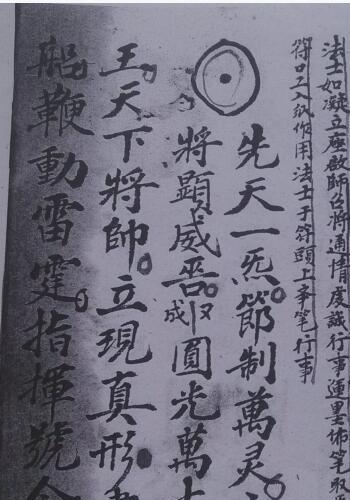 法士如凝立座啟師召將通情虔誠行事運墨怖笔取
符口工入紙作用法士于符頭上爭笔行事
先天一炁節制萬灵
將顯威吞成圓光萬
王天下將帥立現真形
鞭動雷霆指揮號令